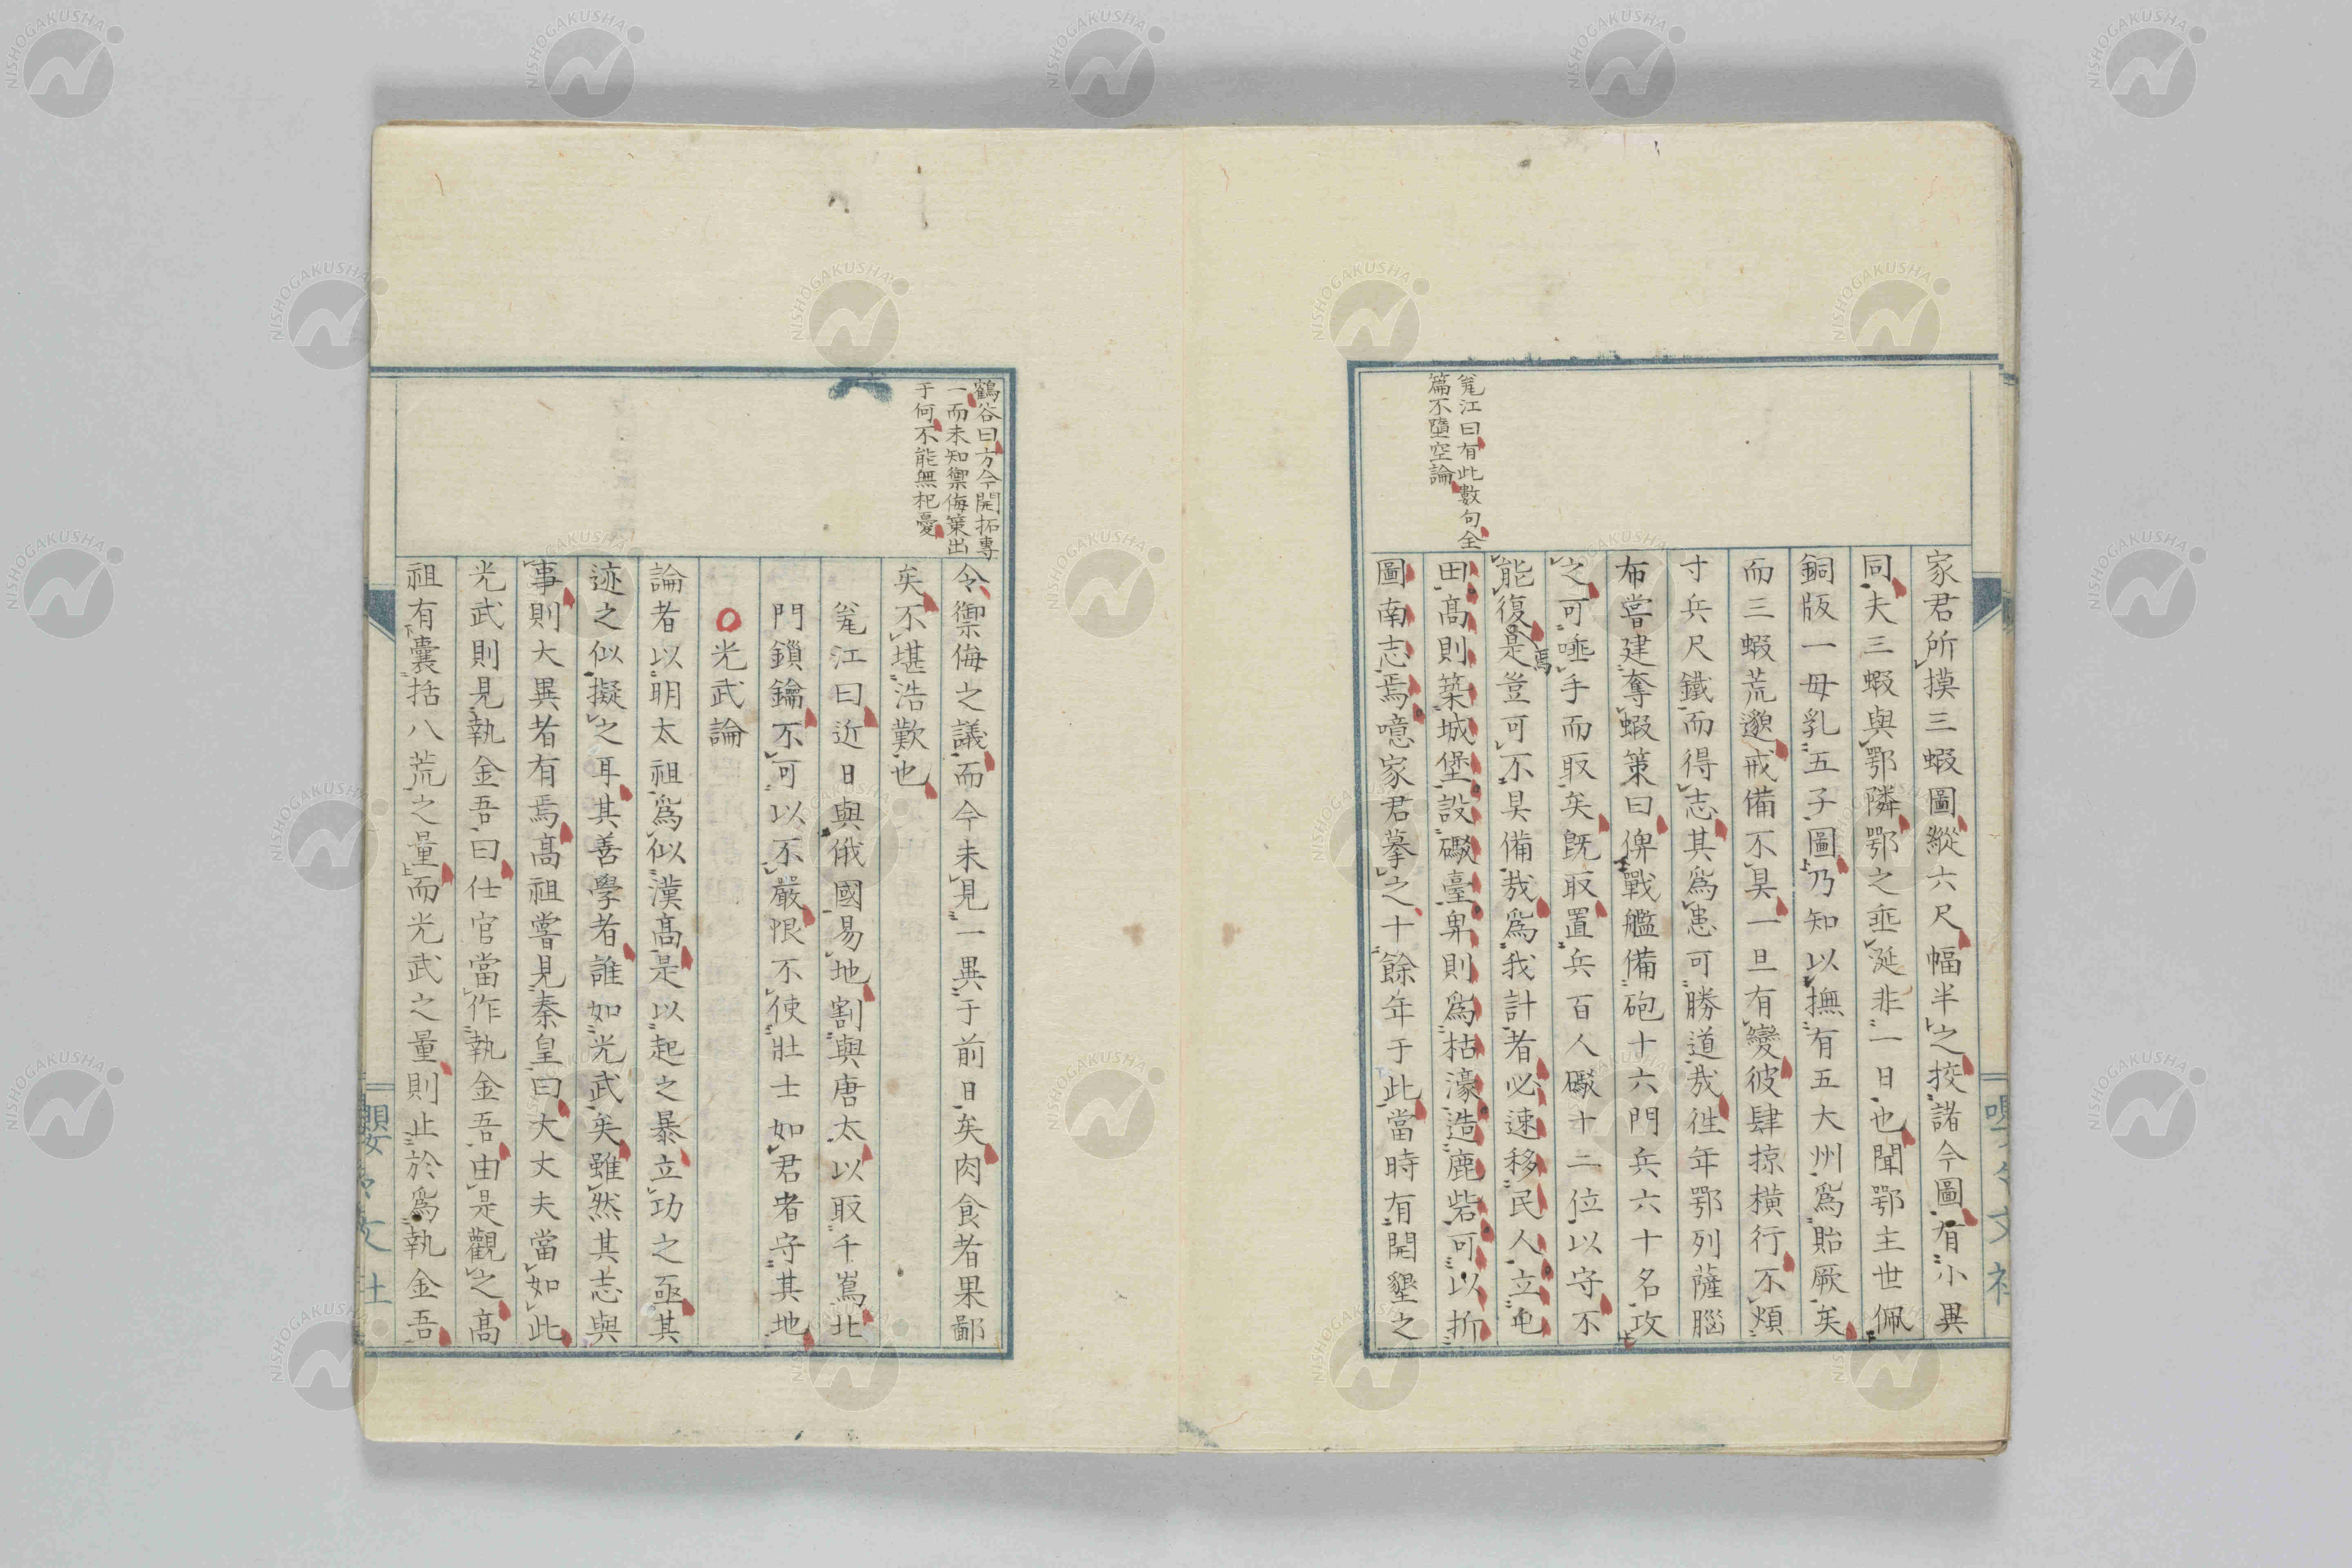 甕江曰有此數句全
篇不墮空論
家君所摸三蝦圖縱六尺幅半之挍諸今圖有小異
同夫三蝦與鄂隣鄂之垂涎非一日也聞鄂主世佩
銅版一母乳五子圖乃知以撫有五大州爲貽厥矣
而三蝦荒邈戒備不具一旦有變彼肆掠橫行不煩
寸兵尺鐵而得志其爲患可勝道哉徃年鄂列薩腦
布嘗建奪蝦策曰俾戰艦備砲十六門兵六十名攻
之可唾手而取矣既取置兵百人礮十二位以守不
能復焉是豈可不具備哉爲我計者必速移民人立屯
田髙則築城堡設礮臺卑則爲枯濠造鹿砦可以折
圖南志焉噫家君摹之十餘年于此當時有開墾之
鶴谷曰方今開拓專
一而未知禦侮策出
于何不能無杞憂
令禦侮之議而今未見一異于前日矣肉食者果鄙
矣不堪浩歎也
甕江曰近日與俄國易地割與唐太以取千嶌北
門鎖鑰不可以不嚴限不使壯士如君者守其地
光武論
論者以明太祖爲似漢髙是以起之暴立功之亟其
迹之似擬之耳其善學者誰如光武矣雖然其志與
事則大異者有焉髙祖嘗見秦皇曰大丈夫當如此
光武則見執金吾曰仕官當作執金吾由是觀之髙
祖有囊括八荒之量而光武之量則止於爲執金吾
NISHOGAKUSHA